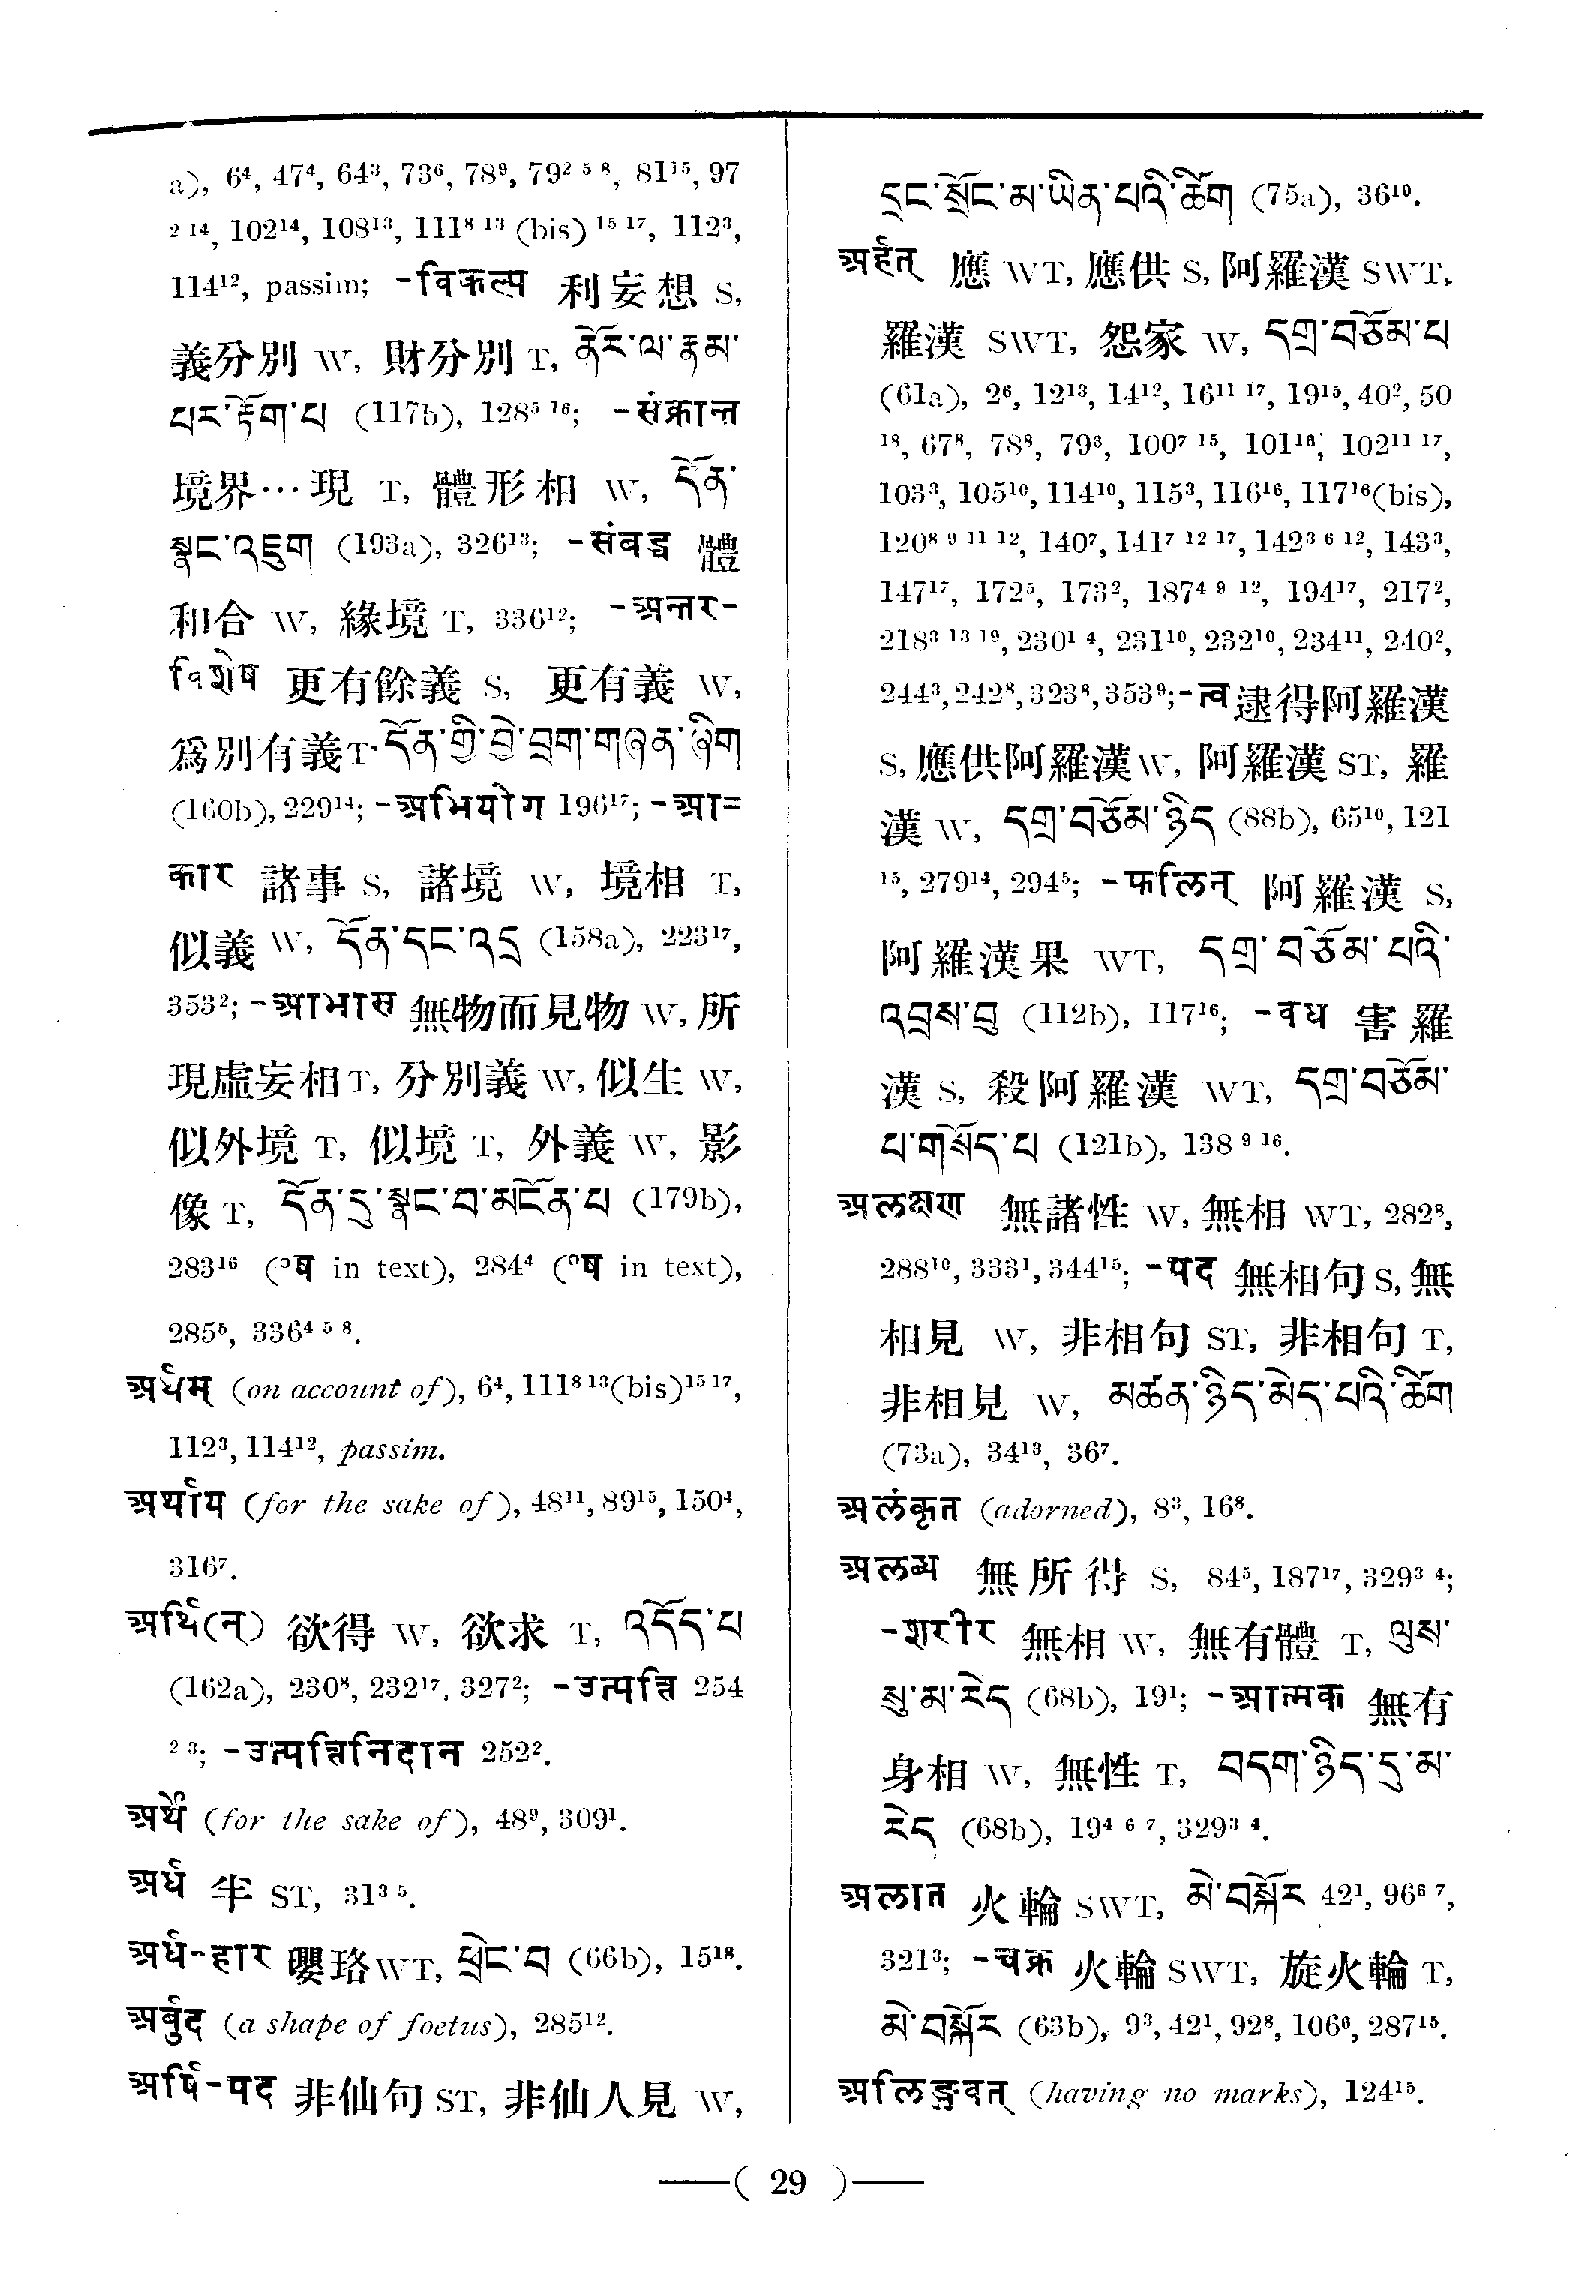 a), 6⁴, 47⁴, 64³, 73⁶, 78⁹, 79² ⁵ ⁸, 81¹⁵, 97
² ¹⁴, 102¹⁴, 108¹³, 111⁸ ¹³ (bis) ¹⁵ ¹⁷, 112³,
114¹², passim; -विकल्प 利妄想 S,
義分別 W, 財分別 T, ནོར་ལ་རྣམ་
པར་རྟོག་པ (117b), 128⁵ ¹⁶; -संक्रान्त
境界…現 T, 體形相 W, དོན་
སྣང་འཇུག (193a), 326¹³; -संबद्ध 體
和合 W, 緣境 T, 336¹²; -अन्तर-
विशेष 更有餘義 S, 更有義 W,
爲別有義T་དོན་གྱི་བྱེ་བྲག་གཞན་ཞིག
(160b), 229¹⁴; -अभियोग 196¹⁷; -आ=
कार 諸事 S, 諸境 W, 境相 T,
似義 W, དོན་དང་འདྲ (158a), 223¹⁷,
353²; -आभास 無物而見物 W, 所
現虛妄相T, 分別義 W, 似生 W,
似外境 T, 似境 T, 外義 W, 影
像 T, དོན་དུ་སྣང་བ་མངོན་པ (179b),
283¹⁶ (°ष in text), 284⁴ (°ष in text),
285⁵, 336⁴ ⁵ ⁸.
अर्थम् (on account of), 6⁴, 111⁸ ¹³(bis)¹⁵ ¹⁷,
112³, 114¹², passim.
अर्थाय (for the sake of), 48¹¹, 89¹⁵, 150⁴,
316⁷.
अर्थि(न्) 欲得 W, 欲求 T, འདོད་པ
(162a), 230⁸, 232¹⁷, 327²; -उत्पत्ति 254
² ³; -उत्पत्तिनिदान 252².
अर्थे (for the sake of), 48⁹, 309¹.
अर्ध 半 ST, 31³ ⁵.
अर्ध-हार 瓔珞WT, ཕྲེང་བ (66b), 15¹⁸.
अर्बुद (a shape of foetus), 285¹².
अर्षि-पद 非仙句 ST, 非仙人見 W,
དྲང་སྲོང་མ་ཡིན་པའི་ཚིག (75a), 36¹⁰.
अर्हत् 應 WT, 應供 S, 阿羅漢 SWT,
羅漢 SWT, 怨家 W, དགྲ་བཅོམ་པ
(61a), 2⁶, 12¹³, 14¹², 16¹¹ ¹⁷, 19¹⁵, 40², 50
¹³, 67⁸, 78⁸, 79³, 100⁷ ¹⁵, 101¹⁶, 102¹¹ ¹⁷,
103³, 105¹⁰, 114¹⁰, 115³, 116¹⁶, 117¹⁶(bis),
120⁸ ⁹ ¹¹ ¹², 140⁷, 141⁷ ¹² ¹⁷, 142³ ⁶ ¹², 143³,
147¹⁷, 172⁵, 173², 187⁴ ⁹ ¹², 194¹⁷, 217²,
218³ ¹³ ¹⁹, 230¹ ⁴, 231¹⁰, 232¹⁰, 234¹¹, 240²,
244³, 242⁸, 323⁸, 353⁹; -त्व 逮得阿羅漢
S, 應供阿羅漢W, 阿羅漢 ST, 羅
漢 W, དགྲ་བཅོམ་ཉིད (88b), 65¹⁰, 121
¹⁵, 279¹⁴, 294⁵; -फलिन् 阿羅漢 S,
阿羅漢果 WT, དགྲ་བཅོམ་པའི་
འབྲས་བུ (112b), 117¹⁶; -वध 害羅
漢 S, 殺阿羅漢 WT, དགྲ་བཅོམ་
པ་གསོད་པ (121b), 138 ⁹ ¹⁶.
अलक्षण 無諸性 W, 無相 WT, 282⁸,
288¹⁰, 333¹, 344¹⁵; -पद 無相句 S, 無
相見 W, 非相句 ST, 非相句 T,
非相見 W, མཚན་ཉིད་མེད་པའི་ཚིག
(73a), 34¹³, 36⁷.
अलंकृत (adorned), 8³, 16⁸.
अलब्ध 無所得 S, 84⁵, 187¹⁷, 329³ ⁴;
-शरीर 無相 W, 無有體 T, ལུས་
སུ་མ་རེད (68b), 19¹; -आत्मक 無有
身相 W, 無性 T, བདག་ཉིད་དུ་མ་
རེད (68b), 19⁴ ⁶ ⁷, 329³ ⁴.
अलात 火輪 SWT, མེ་བསྐོར 42¹, 96⁶ ⁷,
321³; -चक्र 火輪 SWT, 旋火輪 T,
མེ་བསྐོར (63b), 9³, 42¹, 92⁸, 106⁶, 287¹⁵.
अलिङ्गवत् (having no marks), 124¹⁵.
—( 29 )—